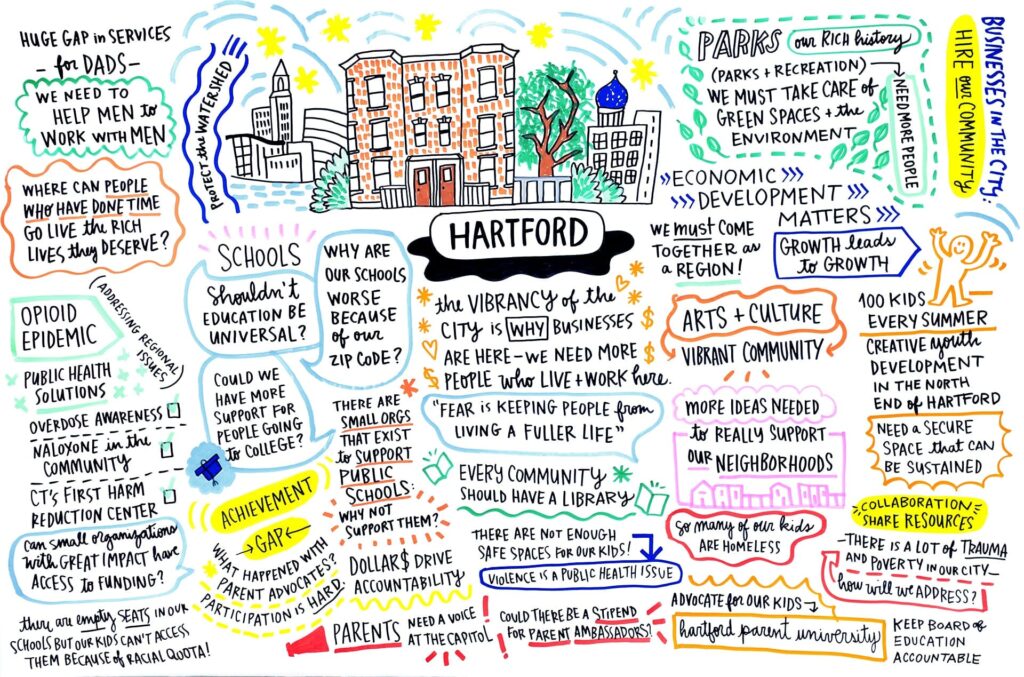 HUGE GAP in SERVICES
- for DADS -
WE NEED to
HELP MEN to
WORK with MEN
WHERE CAN PEOPLE
WHO HAVE DONE TIME
GO LIVE the RICH
LIVES they DESERVE?
(ADDRESSING REGIONAL
ISSUES)
OPIOID
EPIDEMIC
PUBLIC HEALTH
SOLUTIONS
OVERDOSE AWARENESS
NALOXONE in the
COMMUNITY
CT'S FIRST HARM
REDUCTION CENTER
Can small organizations
with GREAT IMPACT have
ACCESS to FUNDING?
there are empty SEATS IN OUR
SCHOOLS BUT OUR KIDS CAN'T ACCESS
THEM BECAUSE of RACIAL QUOTA!
PROTECT the WATERSHED
SCHOOLS
Shouldn't
EDUCATION BE
UNIVERSAL?
WHY ARE
OUR SCHOOLS
WORSE
BECAUSE
of OUR
ZIP CODE?
COULD WE
HAVE MORE
SUPPORT FOR
PEOPLE GOING
to COLLEGE?
ACHIEVEMENT
GAP
WHAT HAPPENED WITH
PARENT ADVOCATES?
PARTICIPATION is HARD.
THERE ARE
SMALL ORGS
THAT EXIST
to SUPPORT
PUBLIC
SCHOOLS:
WHY NOT
SUPPORT THEM?
DOLLAR$ DRIVE
ACCOUNTABILITY
PARENTS NEED A VOICE
AT THE CAPITOL!
HARTFORD
the VIBRANCY of the
CITY is WHY BUSINESSES
ARE HERE - WE NEED MORE
PEOPLE who LIVE + WORK here.
"FEAR is KEEPING PEOPLE from
LIVING A FULLER LIFE"
EVERY COMMUNITY
SHOULD HAVE A LIBRARY
THERE ARE NOT ENOUGH
SAFE SPACES FOR OUR KIDS!
VIOLENCE IS A PUBLIC HEALTH ISSUE
COULD THERE BE A STIPEND
FOR PARENT AMBASSADORS?
PARKS our RICH history
(PARKS + RECREATION)
WE MUST TAKE CARE of
GREEN SPACES + the
ENVIRONMENT
NEED MORE PEOPLE
BUSINESSES IN THE CITY:
HIRE our COMMUNITY
ECONOMIC
DEVELOPMENT
MATTERS
WE must COME
TOGETHER as
a REGION!
GROWTH leads
to GROWTH
ARTS + CULTURE
VIBRANT COMMUNITY
MORE IDEAS NEEDED
to REALLY SUPPORT
OUR NEIGHBORHOODS
So many of our kids
ARE HOMELESS
ADVOCATE for OUR KIDS
hartford parent university
100 KIDS
EVERY SUMMER
CREATIVE youth
DEVELOPMENT
IN THE NORTH
END of HARTFORD
NEED A SECURE
SPACE that CAN
BE SUSTAINED
COLLABORATION
SHARE RESOURCES
- THERE IS A LOT of TRAUMA
AND POVERTY IN OUR CITY -
how will we ADDRESS?
KEEP BOARD of
EDUCATION
ACCOUNTABLE